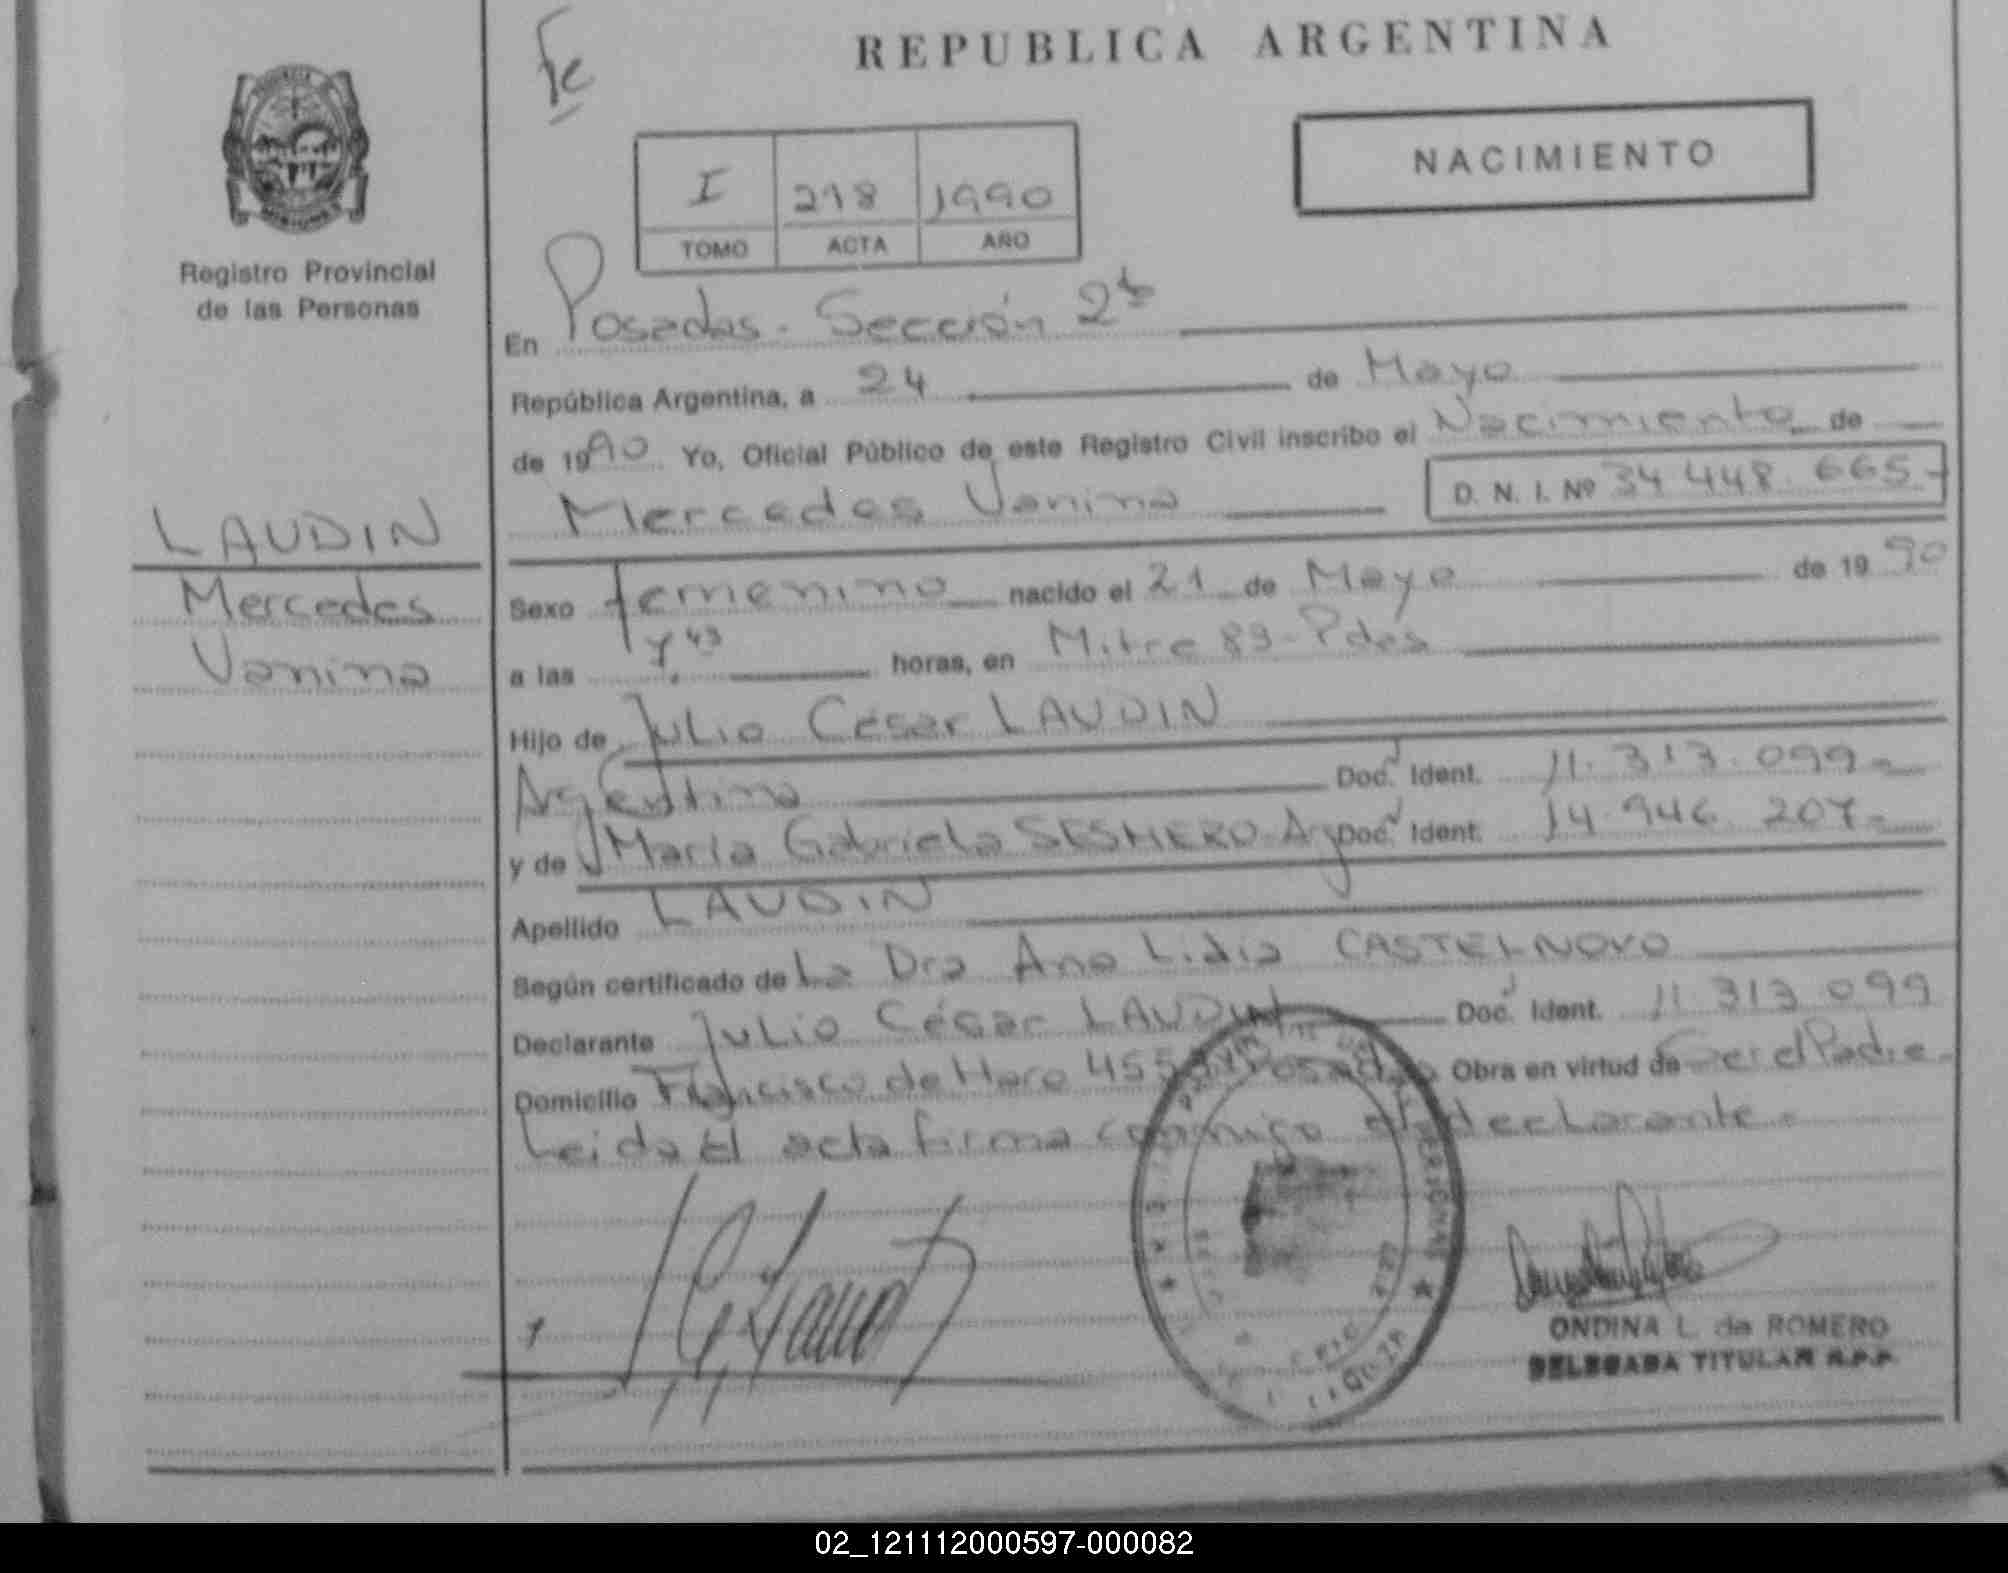 Fe
REPUBLICA ARGENTINA
NACIMIENTO
I 218 1990
TOMO ACTA AÑO
Registro Provincial
de las Personas
En Posadas - Sección 2ª
República Argentina, a 24 de Mayo
de 1990 Yo, Oficial Público de este Registro Civil inscribo el Nacimiento de
Mercedes Vanina D. N. I. Nº 34 448. 665.-
LAUDIN
Mercedes
Vanina
Sexo femenino nacido el 21 de Mayo de 1990
a las horas, en Mitre 89 - Pdas
Hijo de Julio César LAUDIN
Argentino Doc. Ident. 11.313.099-
y de María Gabriela SESMERO Arg Doc. Ident. 14.946.207-
Apellido LAUDIN
Según certificado de La Dra Ana Lidia CASTELNOVO
Declarante Julio César LAUDIN Doc. Ident. 11 313 099
Domicilio Francisco de Haro Posadas Obra en virtud de Ser el Padre
Leida el acta firma conmigo el declarante-
ONDINA L. de ROMERO
DELEGADA TITULAR R.P.P.
02_121112000597-000082